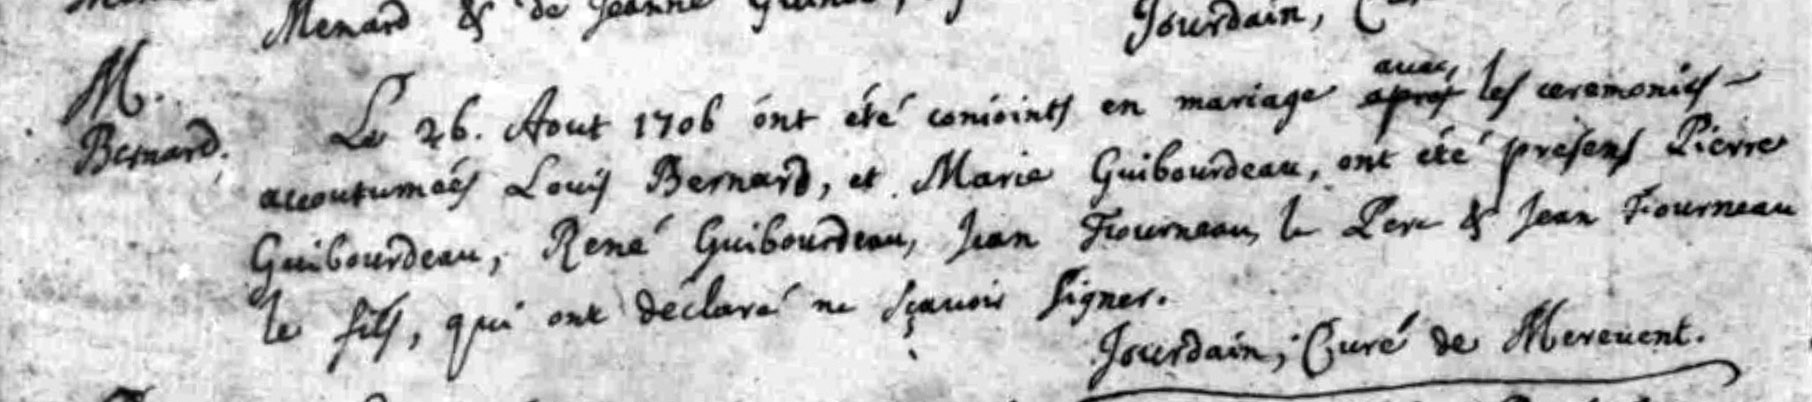 Menard & de Jeanne
Jourdain,
M.
Bernard.
Le 26. Aout 1706 ont été conioints en mariage avec ~~apres~~ les ceremonies
accoutumées Louis Bernard, et Marie Guibourdeau, ont été présens Pierre
Guibourdeau, René Guibourdeau, Jean Fourneau, le Pere & Jean Fourneau
le fils, qui ont déclaré ne sçavoir signer.
Jourdain, Curé de Mereuent.